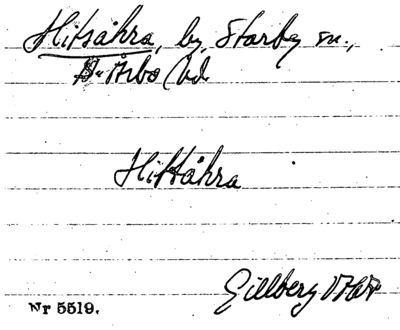 Hitsåhra, by, Starby sn.,
Årbo
Hittåhra
Gillberg
Nr 5519.